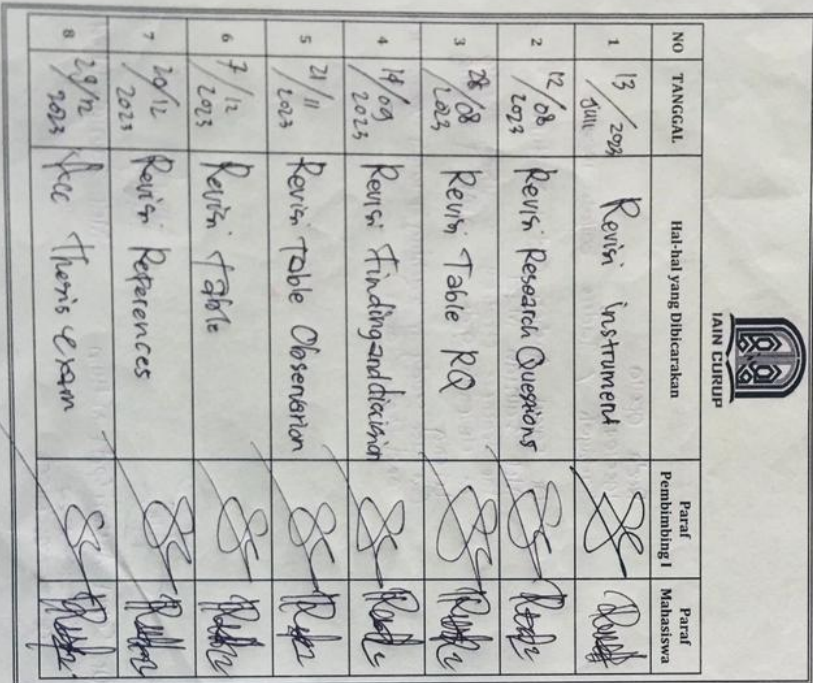 IAIN CURUP
NO TANGGAL Hal-hal yang Dibicarakan Paraf Pembimbing I Paraf Mahasiswa
1 13/Juli 2023 Revisi instrument
2 12/08 2023 Revisi Research Questions
3 28/08 2023 Revisi Table RQ
4 14/09 2023 Revisi Finding and discision
5 21/11 2023 Revisi table Observation
6 7/12 2023 Revisi table
7 20/12 2023 Revisi References
8 29/12 2023 Acc thesis exam